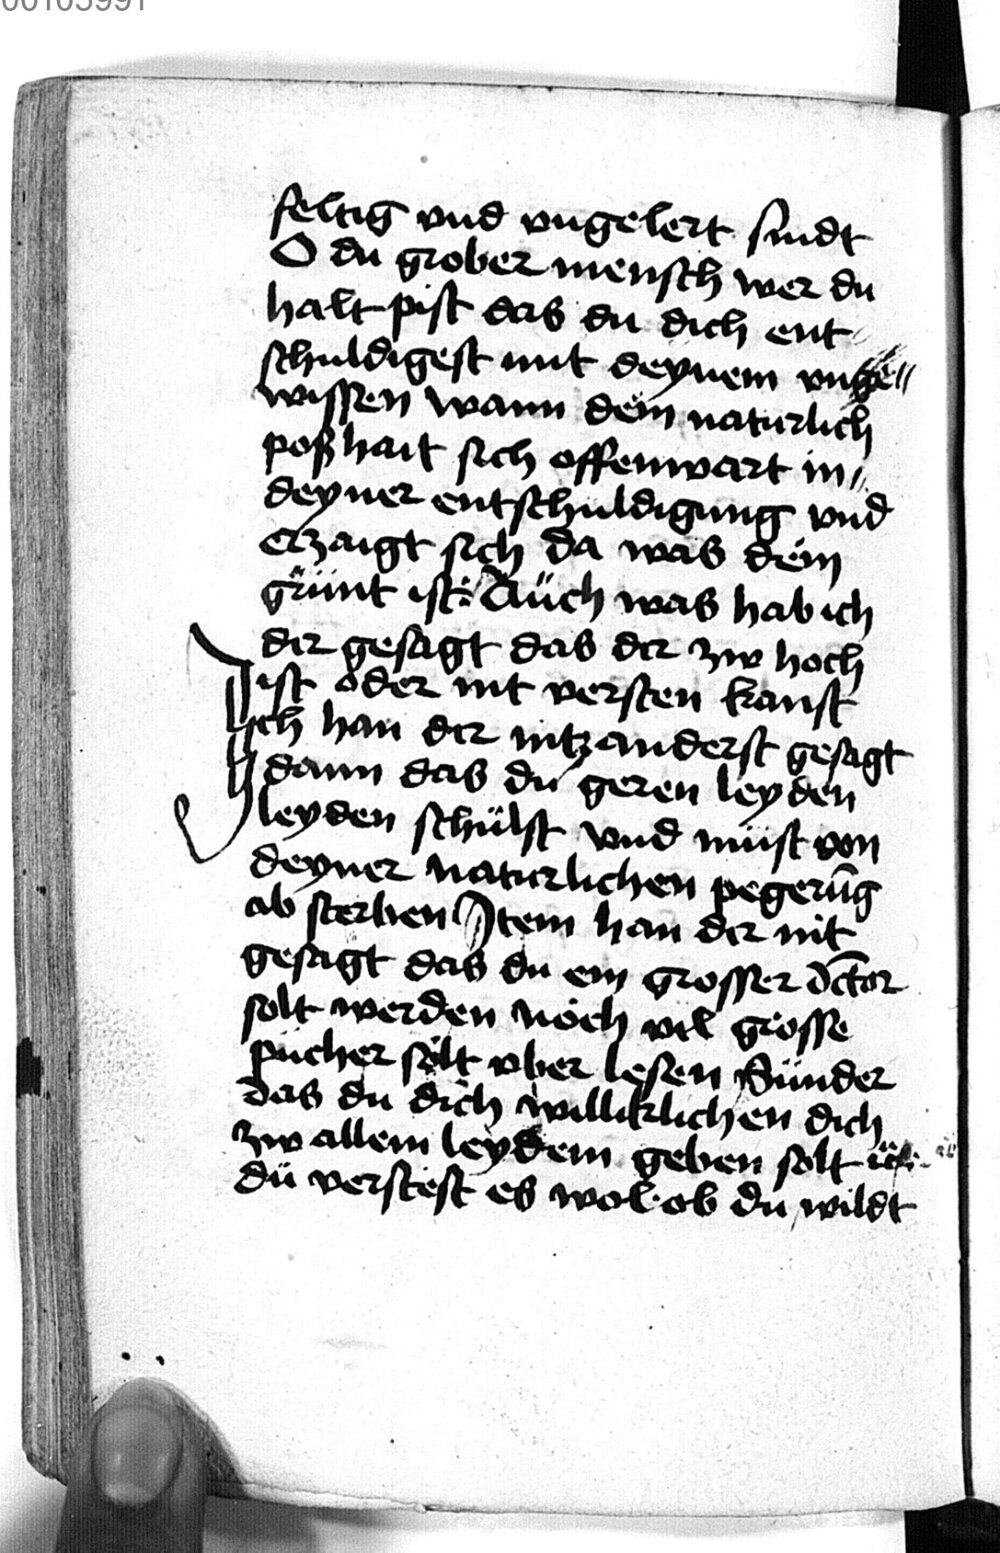 00103991
feltig vnd vngelert sindt
O du grober mensch wer du
halt pist das du dich ent
schuldigest mit deynem vnge〃
wissen wann dein naturlich
poßhait sich offenwart in〃
deyner entschuldigung vnd
erzaigt sich da was dein
grünt ist: Aüch was hab ich
dir gesagt das dir zw hoch
ist oder nit versten kanst
Ich han dir nitz anderst gesagt
dann das du geren leyden
leyden schülst vnd müst von
deyner naturlichen pegerūg
ab sterben Item han dir nit
gesagt das du ein grosser doctor
solt werden noch vil grosse
pücher solt vber lesen Sünder
das du dich williklichen dich
zw allem leydem geben solt
dü verstest es wol ob du wildt